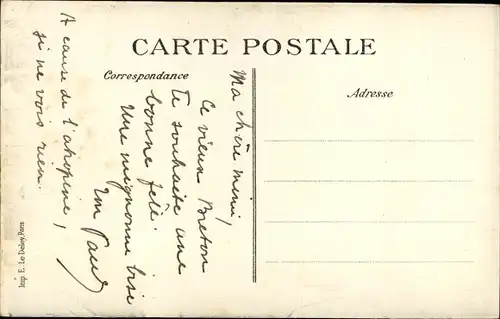 CARTE POSTALE
Correspondance
Adresse
Ma chère mimi,
Ce vieux Breton
te souhaite une
bonne fête.
Une mignonne bise
Ton Paul
A cause de l'atropine,
je ne vois rien.
Imp. E. Le Deley, Paris